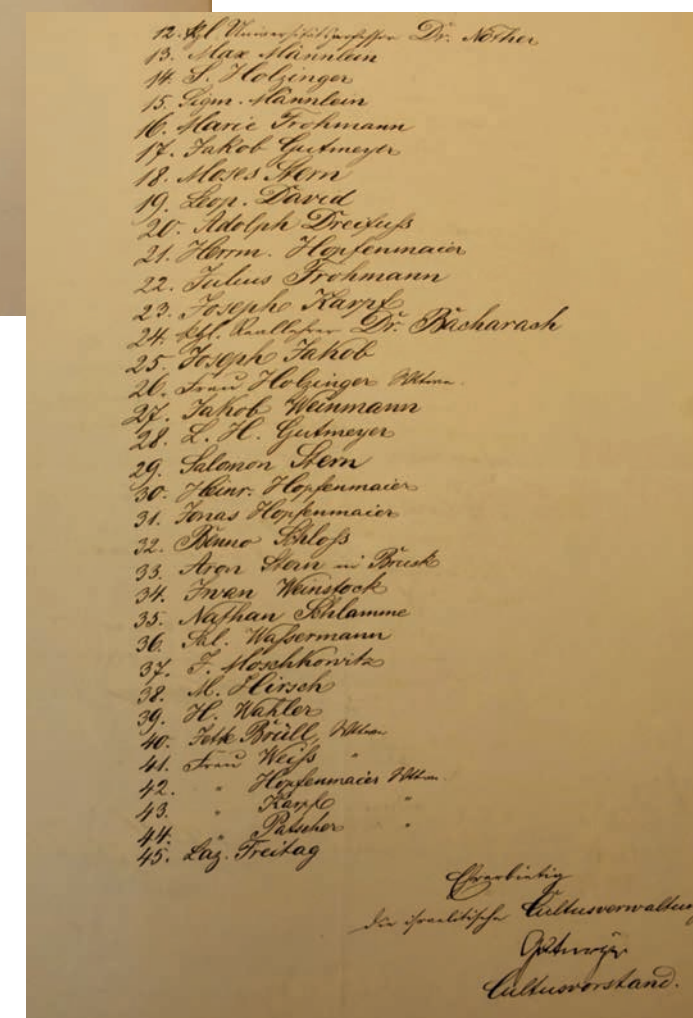 12. Kgl. Universitätsprofessor Dr. Nöther
13. Max Männlein
14. S. Holzinger
15. Sigm. Männlein
16. Marie Frohmann
17. Jakob Gutmeyer
18. Moses Stern
19. Leop. David
20. Adolph Dreifuß
21. Herrm. Hopfenmaier
22. Julius Frohmann
23. Joseph Karpf
24. Kgl. Reallehrer Dr. Bacharach
25. Joseph Jakob
26. Frau Holzinger Witwe
27. Jakob Weinmann
28. L. H. Gutmeyer
29. Salomon Stern
30. Heinr. Hopfenmaier
31. Jonas Hopfenmaier
32. Benno Schloß
33. Aron Stern in Bruck
34. Iwan Weinstock
35. Nathan Schlamme
36. Sal. Waßermann
37. J. Moschkowitz
38. M. Hirsch
39. H. Wahler
40. Brüll, Witwe
41. Frau Weiß "
42. " Hopfenmaier Witwe
43. " Karpf "
44. " Patscher "
45. Laz. Freitag
Ehrerbietig
Die israelitische Cultusverwaltung
Cultusvorstand.